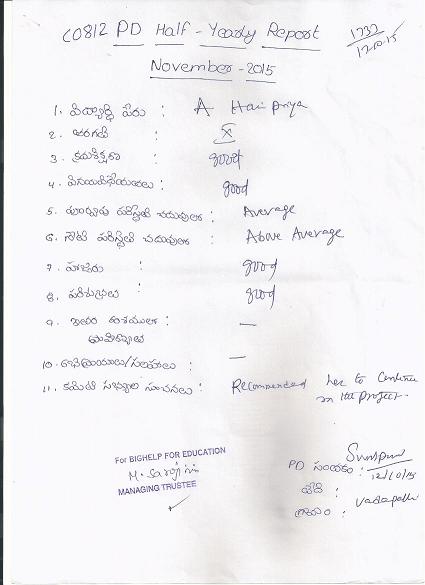 C0812 PD Half-Yearly Report
1732
12.10.15
November-2015
1. విద్యార్థి పేరు : A Haripriya
2. తరగతి : X
3. క్రమశిక్షణ : good
4. వినయవిధేయతలు : good
5. పూర్వపు పరిస్థితి చదువులో : Average
6. నేటి పరిస్థితి చదువులో : Above Average
7. హాజరు : good
8. పరిశుభ్రత : good
9. ఇతర అంశములలో : —
10. అభిప్రాయాలు/సలహాలు : —
11. కమిటీ సభ్యుల సూచనలు : Recommended her to continue
in the Project.
For BIGHELP FOR EDUCATION
M. Sarojini
MANAGING TRUSTEE
PD సంతకం :
12/10/15
తేది :
గ్రామం :